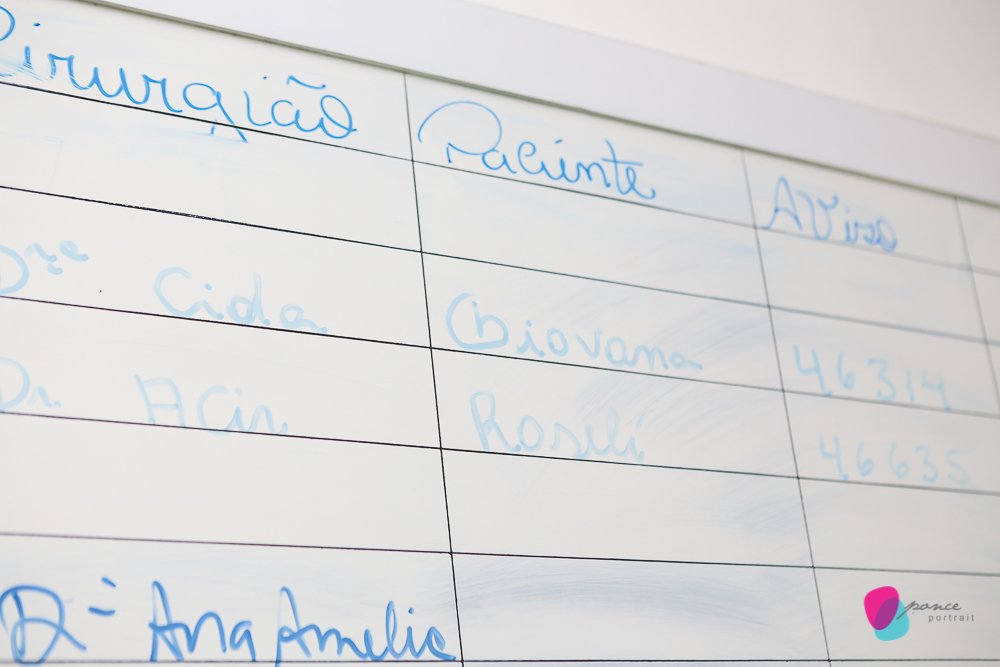 Cirurgião Paciente Aviso
Drª Cida Giovana 46314
Dr. Acir Roseli 46635
D = Ana Amelia
ponce
portrait